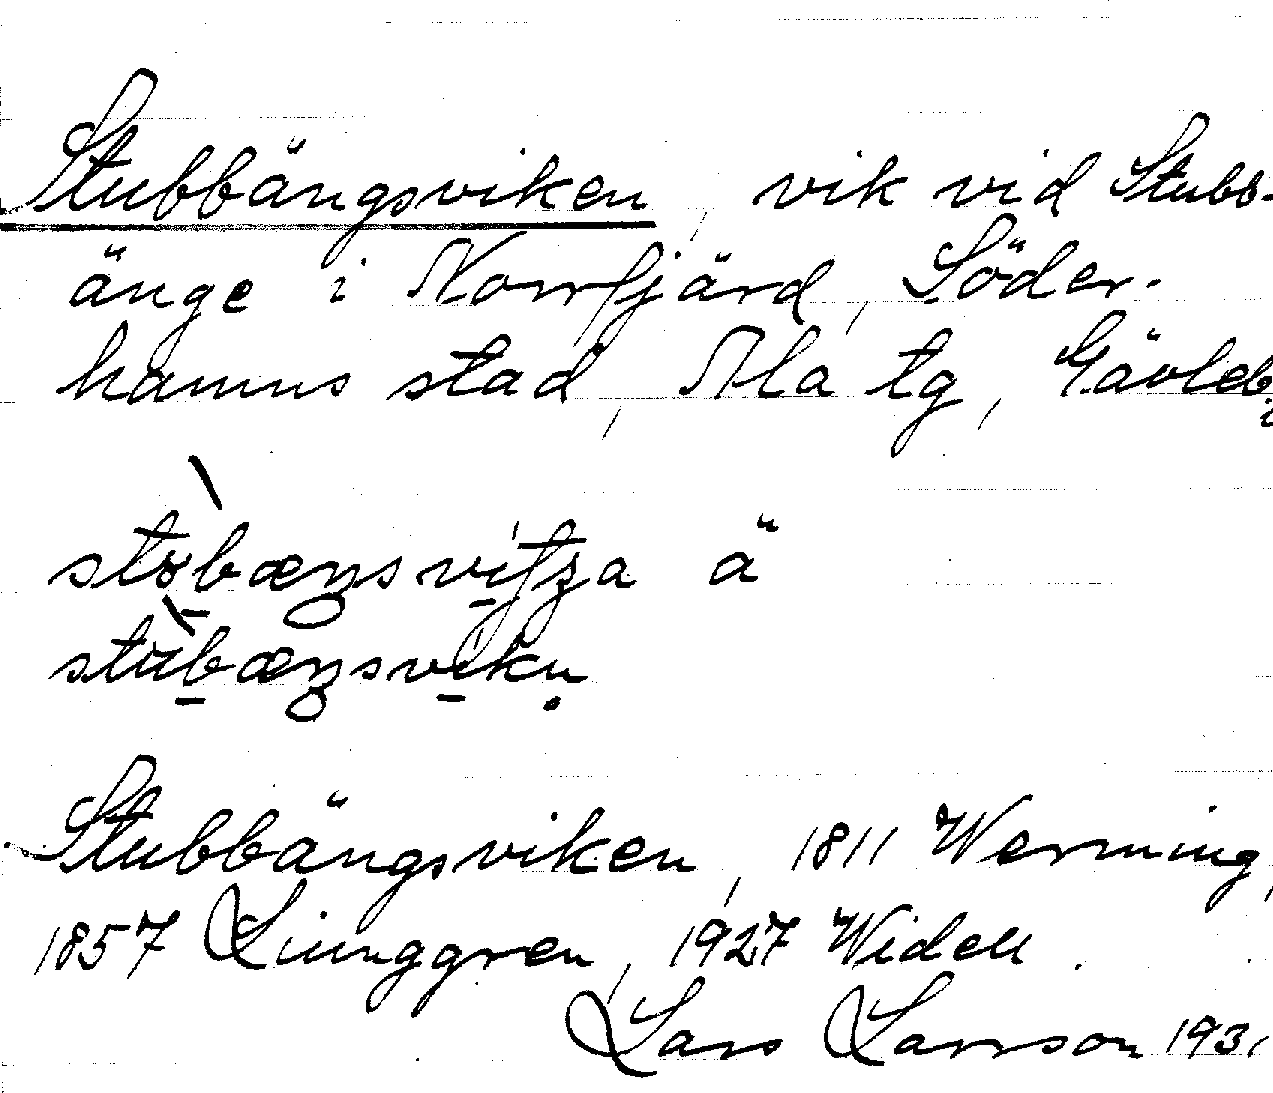 Stubbängsviken, vik vid Stubb-
änge i Norrfjärd, Söder-
hamns stad, Ala tg, Gävleb.
ä
Stubbängsviken, 1811 Werming,
1857 Ljunggren, 1927 Widell.
Lars Larsson 1931